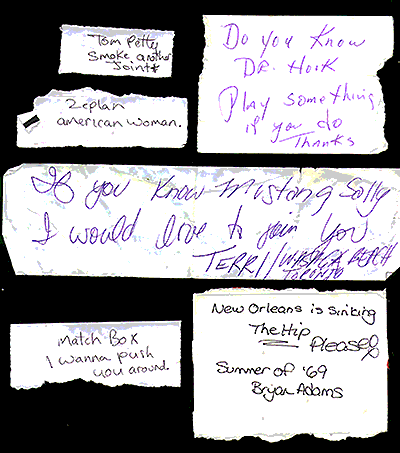 Tom Petty
Smoke another
Joint*
Do you Know
DR. Hook
Play something
if you do
Thanks
Zeplan
american woman.
If you Know Mustang Sally
I would love to join you
TERRI/WASAGA BEACH
TORONTO
Match Box
I wanna push
you around.
New Orleans is sinking
The Hip
Please!
Summer of '69
Bryan Adams